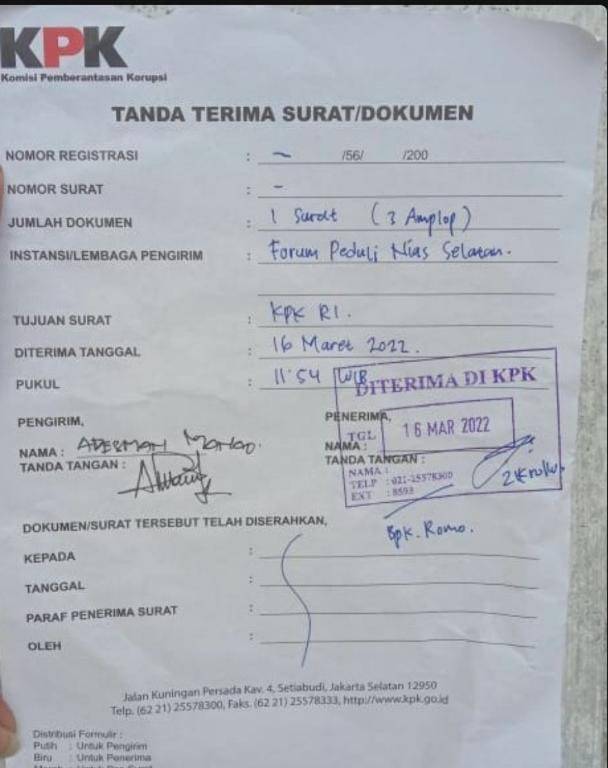 KPK
Komisi Pemberantasan Korupsi
TANDA TERIMA SURAT/DOKUMEN
NOMOR REGISTRASI : - /56/ /200
NOMOR SURAT : -
JUMLAH DOKUMEN : 1 Surat (3 Amplop)
INSTANSI/LEMBAGA PENGIRIM : Forum Peduli Nias Selatan.
TUJUAN SURAT : KPK RI.
DITERIMA TANGGAL : 16 Maret 2022.
PUKUL : 11.54 WIB
DITERIMA DI KPK
TGL 16 MAR 2022
NAMA :
TELP : 021-25578300
EXT : 8593
PENGIRIM,
NAMA :
TANDA TANGAN :
PENERIMA,
NAMA :
TANDA TANGAN :
Bpk. Romo.
DOKUMEN/SURAT TERSEBUT TELAH DISERAHKAN,
KEPADA :
TANGGAL :
PARAF PENERIMA SURAT :
OLEH :
Jalan Kuningan Persada Kav. 4, Setiabudi, Jakarta Selatan 12950
Telp. (62 21) 25578300, Faks. (62 21) 25578333, http://www.kpk.go.id
Distribusi Formulir :
Putih : Untuk Pengirim
Biru : Untuk Penerima